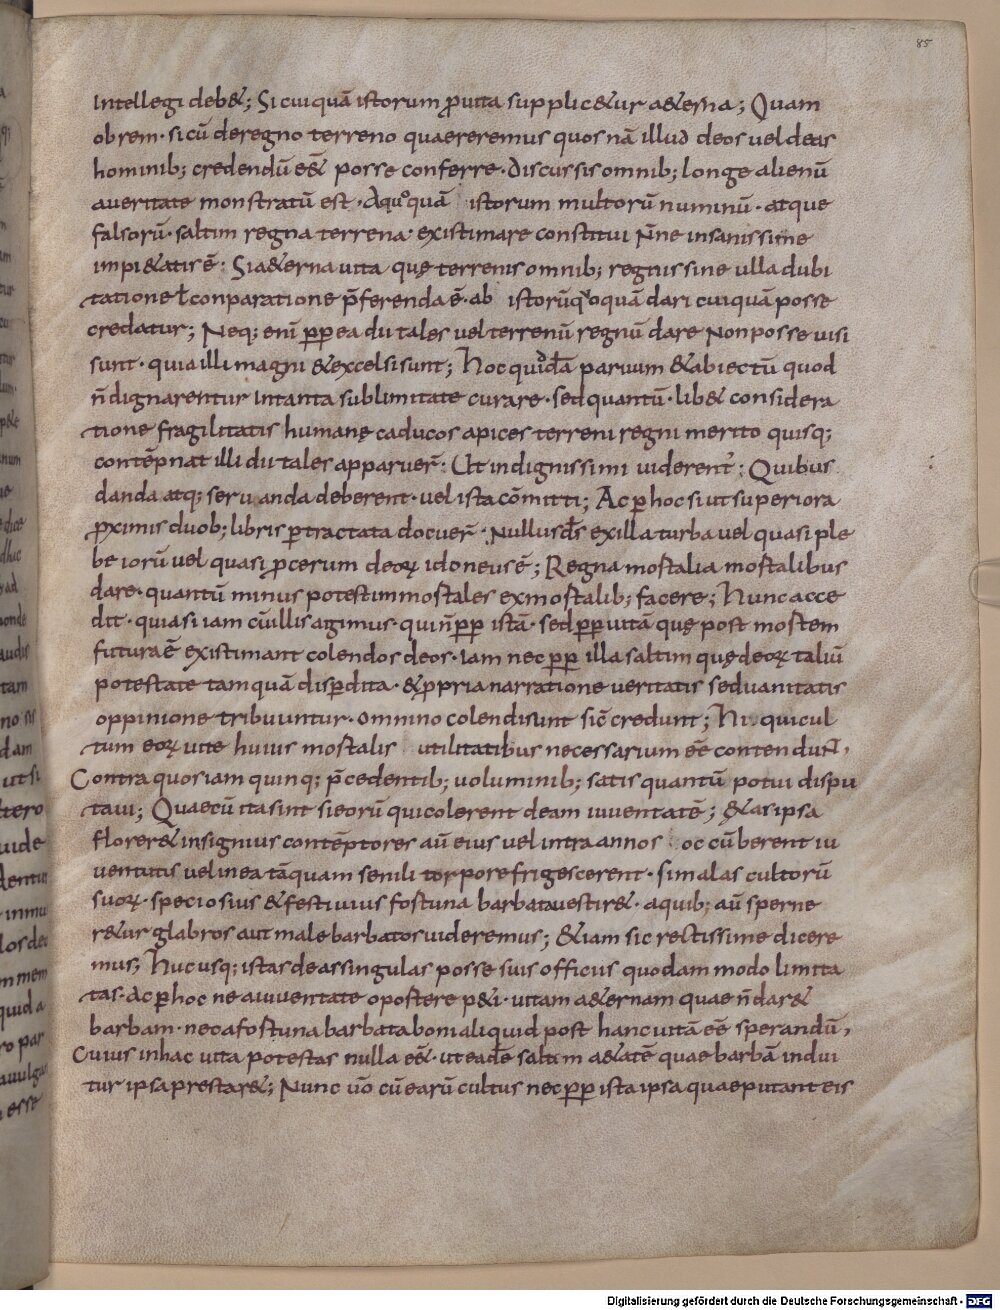 85
Intellegi deb&; Si cuiquā istorum ꝓ uita supplic&ur a&erna; Quam
obrem· si cū de regno terreno quaereremus quos nā illud deos uel deas
hominib; credendū ess& posse conferre· Discussis omnib; longe alienū
a ueritate monstratū est· A quoquā istorum multorū numinū· atque
falsorū· saltim regna terrena· existimare constitui Nne insanissime
impi&atis ē: Si a&erna uita quę terrenis omnib; regnis sine ulla dubi
tatione ł conparatione p̄ferenda ē· ab istorū quoquā dari cuiquā posse
credatur; Neq; enī ꝑꝑea dii tales uel terrenū regnū dare Non posse uisi
sunt· quia illi magni & excelsi sunt; Hoc quiddā paruum & abiectū quod
n̄ dignarentur In tanta sublimitate curare· sed quantū· lib& considera
tione fragilitatis humanę caducos apices terreni regni merito quisq;
contēpnat illi dii tales apparuer̄: Ut indignissimi uiderent᷑: Quibus
danda atq; seruanda deberent· uel ista cōmitti; Ac ꝑ hoc si ut superiora
ꝓximis duob; libris ꝑtractata docuer̄· Nullus d̄s ex illa turba uel quasi ple
beiorū uel quasi ꝓcerum deoꝝ idoneus ē; Regna mortalia mortalibus
dare· quantū minus potest immortales ex mortalib; facere; Hunc acce
dit· quia si iam cū illis agimus· qui n̄ ꝑꝑ istā· sed ꝑꝑ uitā quę post mortem
futura ē existimant colendos deos· Iam nec ꝑꝑ illa saltim quę deoꝝ taliū
potestate tamquā disꝑdita· & ꝓpria narratione ueritatis sed uanitatis
oppinione tribuuntur· omnino colendi sunt sic̄ credunt; Hi· qui cul
tum eoꝝ uite huius mortalis utilitatibus necessarium eē contendunt,
Contra quos iam quinq; p̄cedentib; uoluminib; satis quantū potui dispu
taui; Quae cū ita sint si eorū qui colerent deam iuuentatē; & as ipsa
florer& insignius contēptores aū eius uel intra annos occūberent iu
uentutis uel in ea tāquam senili torpore frigescerent· si malas cultorū
suoꝝ· speciosius & festiuius fortuna barbata uestir&· a quib; aū sperne
r&ur glabros aut male barbatos uideremus; &iam sic rectissime dicere
mus; Hucusq; istas deas singulas posse suis officiis quodam modo limita
tas· Ac ꝑ hoc ne a iuuentate oportere p&i· uitam a&ernam quae n̄ dar&
barbam· nec a fortuna barbata boni aliquid post hanc uitā eē sperandū,
Cuius in hac uita potestas nulla ess&· ut eadē saltim a&atē quae barbā indui
tur ipsa prestar&; Nunc u̅o cū earū cultus nec ꝑꝑ ista ipsa quae putant eis
Digitalisierung gefördert durch die Deutsche Forschungsgemeinschaft - DFG